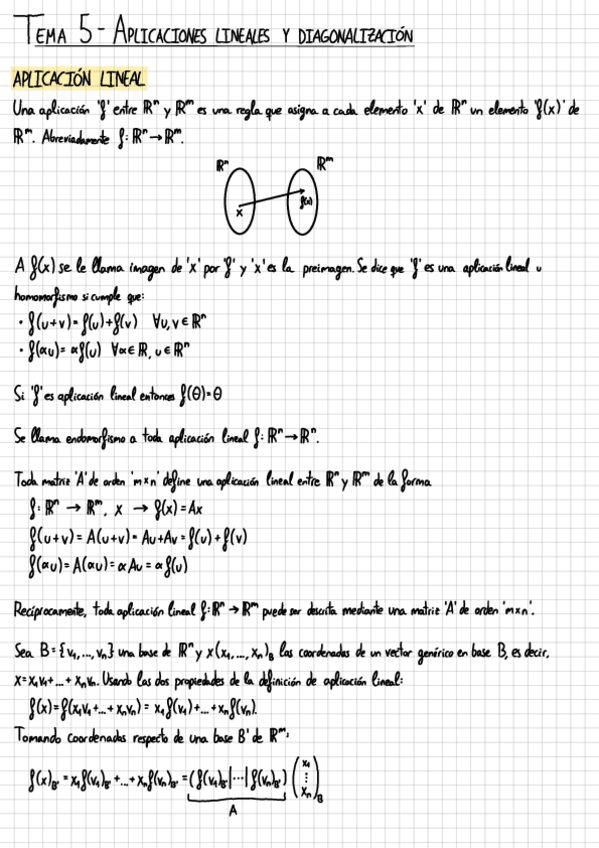 TEMA 5 - APLICACIONES LINEALES Y DIAGONALIZACIÓN
APLICACIÓN LINEAL
Una aplicación 'f' entre ℝⁿ y ℝᵐ es una regla que asigna a cada elemento 'x' de ℝⁿ un elemento 'f(x)' de
ℝᵐ. Abreviadamente f: ℝⁿ → ℝᵐ.
ℝⁿ ℝᵐ
x f(x)
A f(x) se le llama imagen de 'x' por 'f' y 'x' es la preimagen. Se dice que 'f' es una aplicación lineal u
homomorfismo si cumple que:
· f(u+v) = f(u)+f(v) ∀u,v ∈ ℝⁿ
· f(αu) = αf(u) ∀α ∈ ℝ, u ∈ ℝⁿ
Si 'f' es aplicación lineal entonces f(θ)=θ
Se llama endomorfismo a toda aplicación lineal f: ℝⁿ → ℝⁿ.
Toda matriz 'A' de orden 'm×n' define una aplicación lineal entre ℝⁿ y ℝᵐ de la forma
f: ℝⁿ → ℝᵐ, x → f(x) = Ax
f(u+v) = A(u+v) = Au+Av = f(u)+f(v)
f(αu) = A(αu) = αAu = αf(u)
Recíprocamente, toda aplicación lineal f: ℝⁿ → ℝᵐ puede ser descrita mediante una matriz 'A' de orden 'm×n'.
Sea B = {v₁,...,vₙ} una base de ℝⁿ y x(x₁,...,xₙ)_B las coordenadas de un vector genérico en base B, es decir,
x = x₁v₁+...+xₙvₙ. Usando las dos propiedades de la definición de aplicación lineal:
f(x) = f(x₁v₁+...+xₙvₙ) = x₁f(v₁)+...+xₙf(vₙ).
Tomando coordenadas respecto de una base B' de ℝᵐ:
f(x)_B' = x₁f(v₁)_B'+...+xₙf(vₙ)_B' = (f(v₁)_B'|...|f(vₙ)_B') (x₁ ⋮ xₙ)_B
A